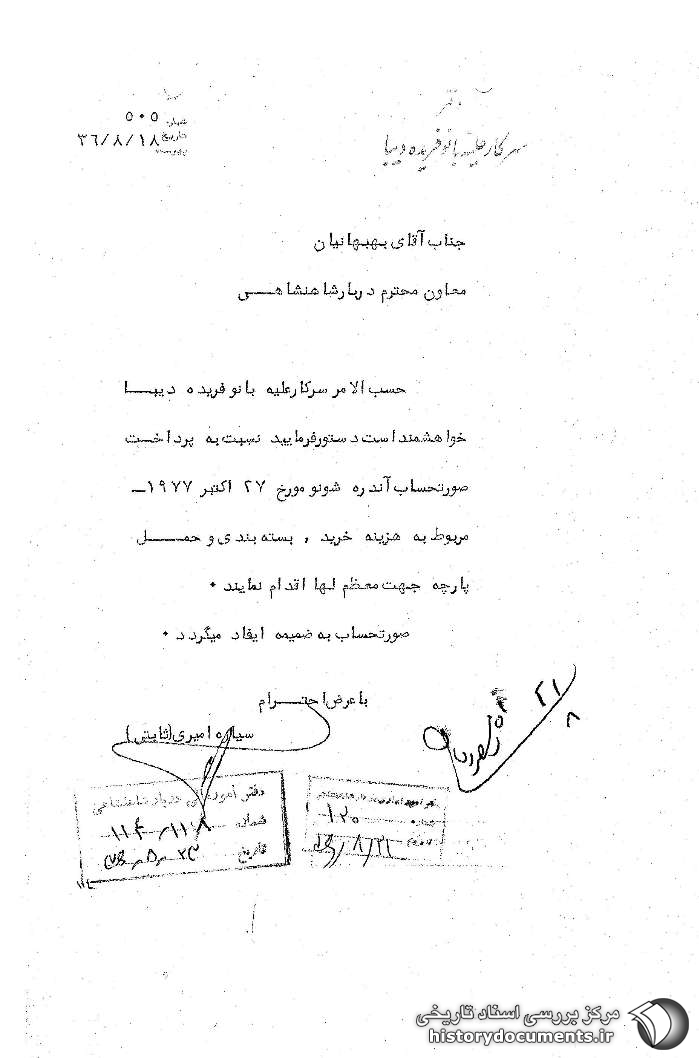 دفتر
سرکار علیه بانو فریده دیبا
شماره ۵۰۵
تاریخ ۳۶/۸/۱۸
پیوست
جناب آقای بهبهانیان
معاون محترم دربار شاهنشاهـــی
حسب الامر سرکار علیه بانو فریده دیبـــا
خواهشمند است دستور فرمایید نسبت به پرداخـت
صورتحساب آندره شونو مورخ ۲۷ اکتبر ۱۹۷۷ــ
مربوط به هزینه خرید , بسته بندی و حمـــل
پارچه جهت معظم لها اقدام نمایند ٠
صورتحساب به ضمیمه ایفاد میگردد ٠
با عرض احتـــرام
سیاره امیری (ثابتی)
۲۱
۸
دفتر امور مالی دربار شاهنشاهی
شماره ۱۱۴-۱۱۰۸
تاریخ
شماره ۱۲۰
۸/۲۱
مرکز بررسی اسناد تاریخی
historydocuments.ir